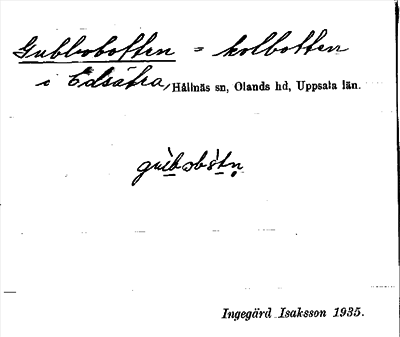 Gubboboften = kolbotten
i Edsätra, Hållnäs sn, Olands hd, Uppsala län.
gùbobòtn̥
Ingegärd Isaksson 1935.